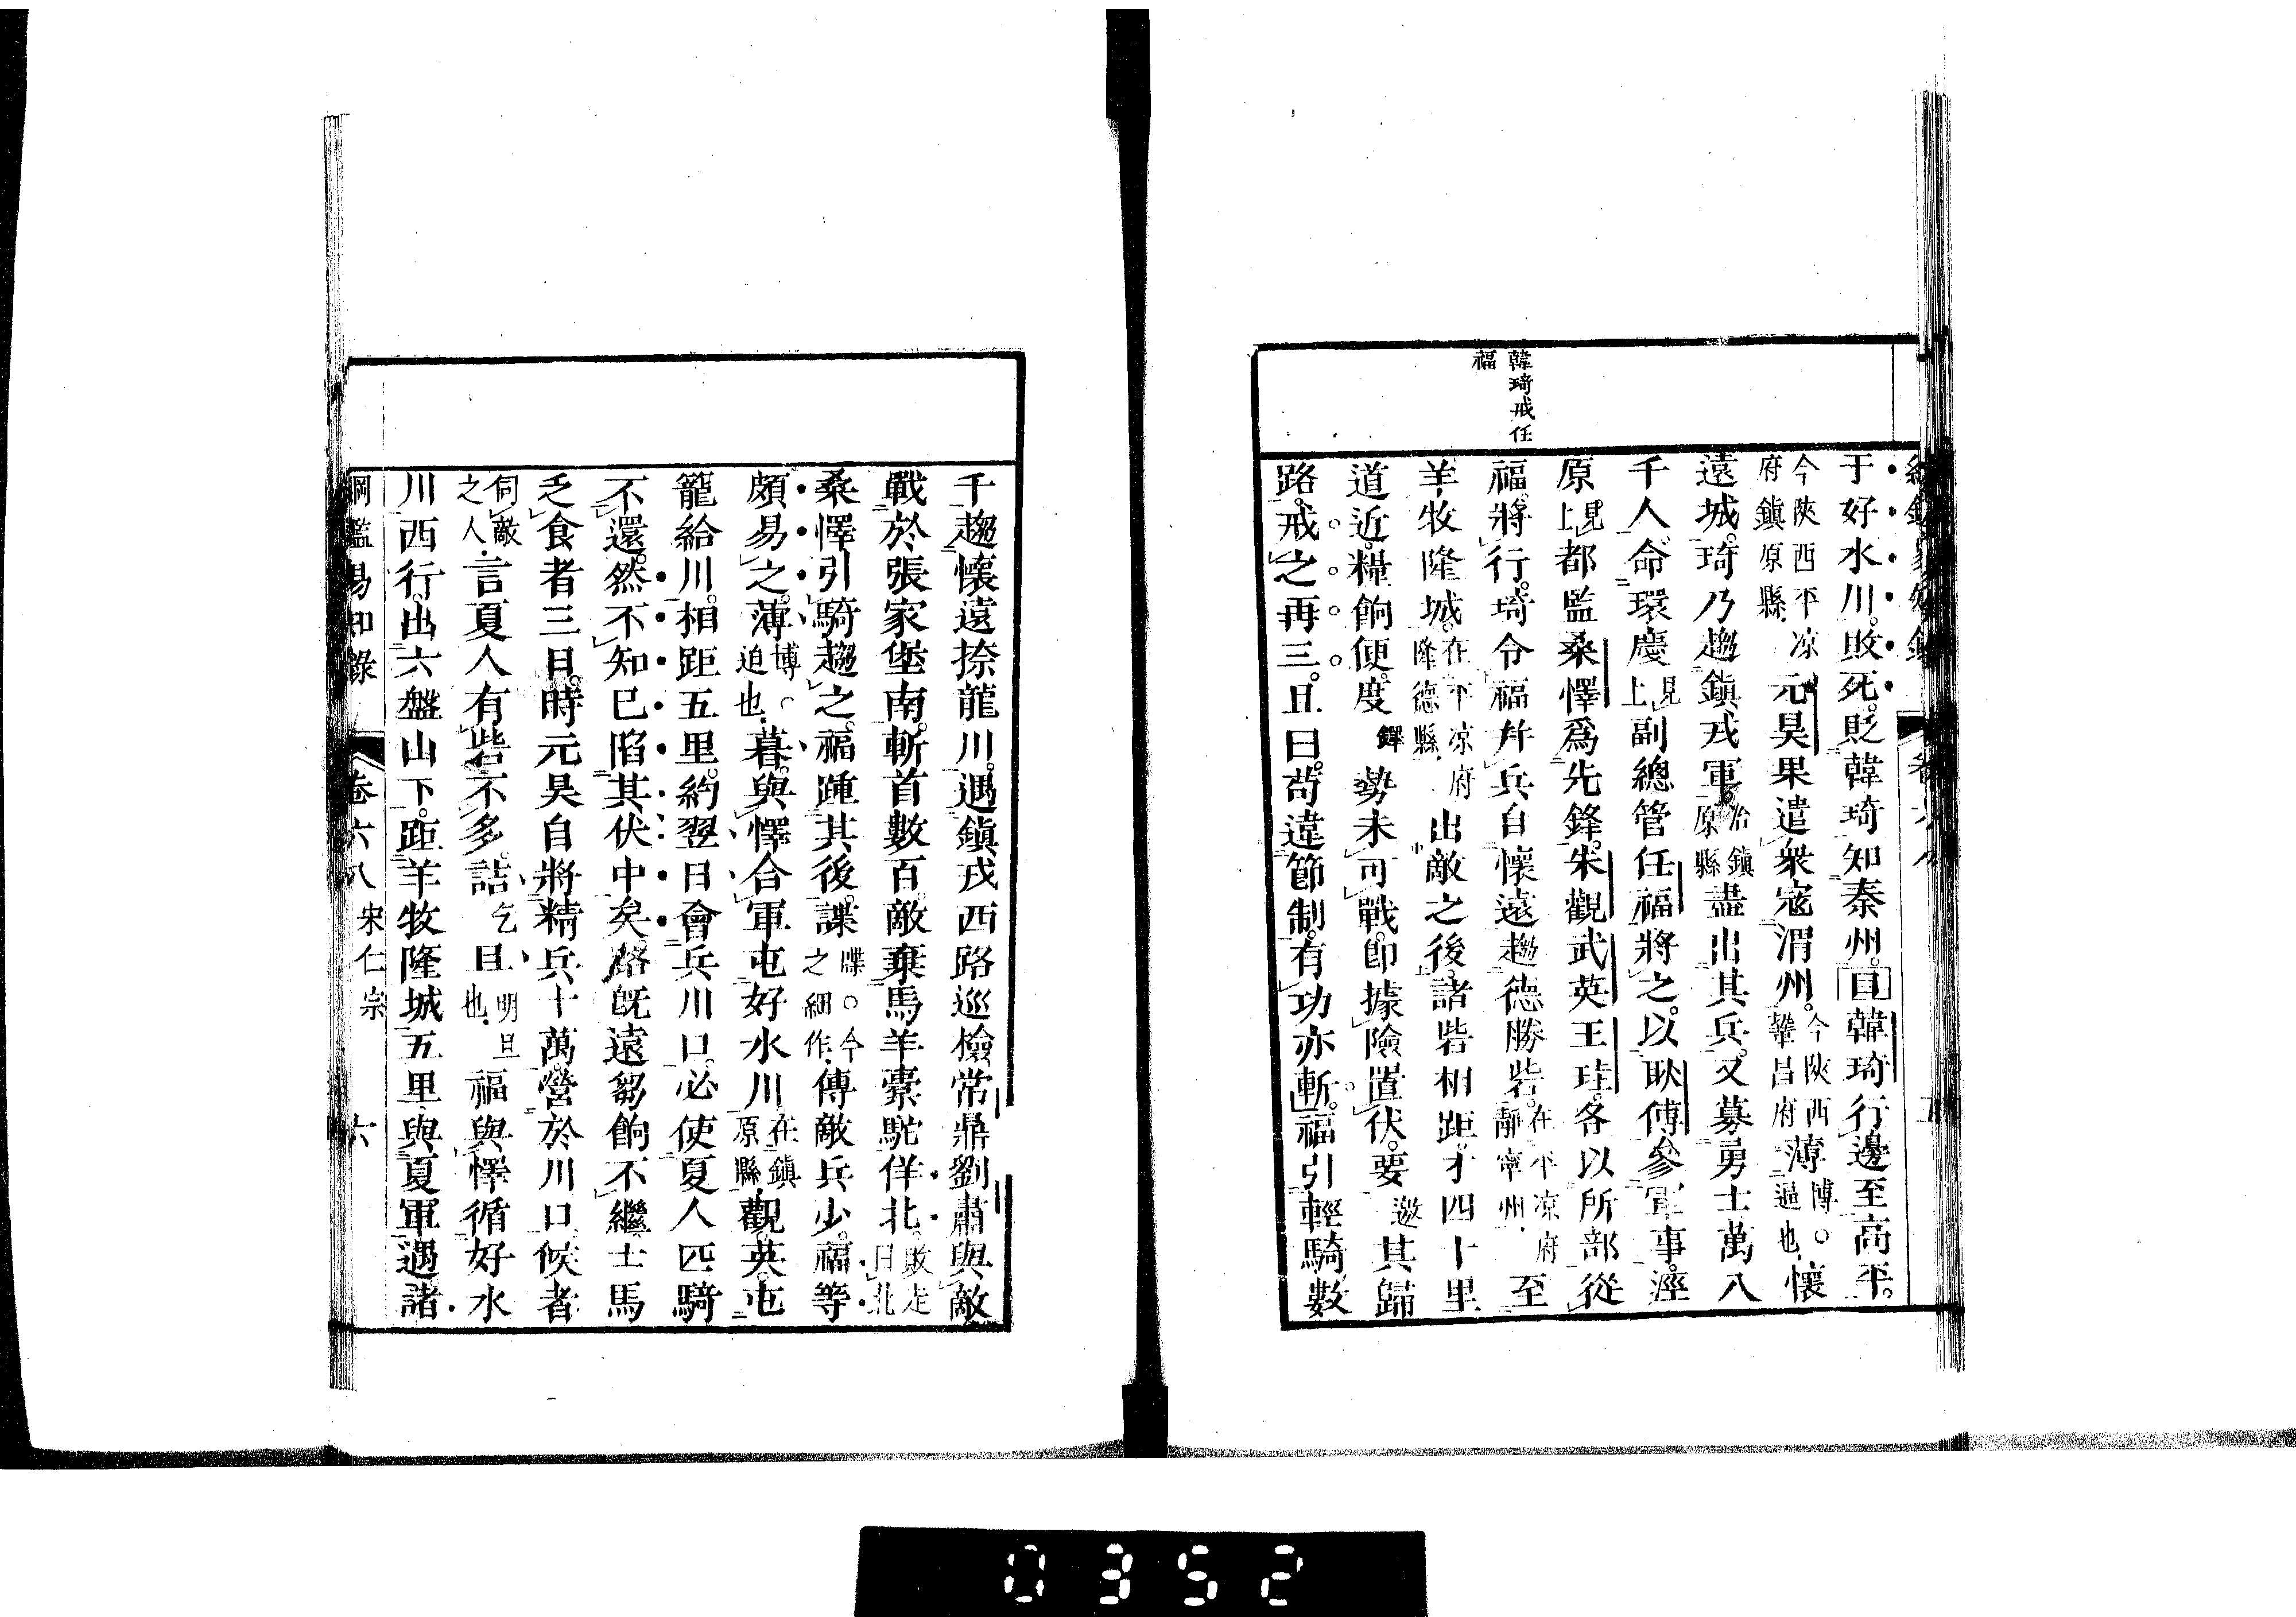 韓琦戒任
福
于好水川。敗死。貶韓琦知秦州。目韓琦行邊至高平。
今陝西平凉府鎭原縣。元昊果遣衆寇渭州。今陝西鞏昌府薄博。○逼也。懷
遠城。琦乃趨鎭戎軍治鎭原縣盡出其兵。又募勇士萬八
千人。命環慶見上副總管任福將之。以耿傅參軍事。涇
原。見上都監桑懌爲先鋒。朱觀武英王珪。各以所部從
福。將行。琦令福幷兵自懷遠趨德勝砦。在平凉府靜寧州。至
羊牧隆城。在平凉府隆德縣。出敵之後。諸砦相距。才四十里
道近。糧餉便。度鐸勢未可戰。卽據險置伏。要邀其歸
路。戒之再三。且曰。苟違節制。有功亦斬。福引輕騎數
千趨懷遠捺龍川。遇鎭戎西路巡檢常鼎劉肅與敵
戰於張家堡南。斬首數百。敵棄馬羊橐駝佯北。敗走曰北
桑懌引騎趨之。福踵其後。諜牒。○今之細作。傳敵兵少。福等
頗易之。薄博。○迫也。暮。與懌合軍屯好水川。在鎭原縣。觀英。屯
籠給川。相距五里。約翌日會兵川口。必使夏人匹騎
不還。然不知已陷其伏中矣。路旣遠芻餉不繼士馬
乏食者三日。時元昊自將精兵十萬。營於川口。候者
伺敵之人。言夏人有砦不多。詰乞旦明旦也。福與懌循好水
川西行。出六盤山下。距羊牧隆城五里。與夏軍遇。諸
綱鑑易知錄 卷六八 宋仁宗 六
0352